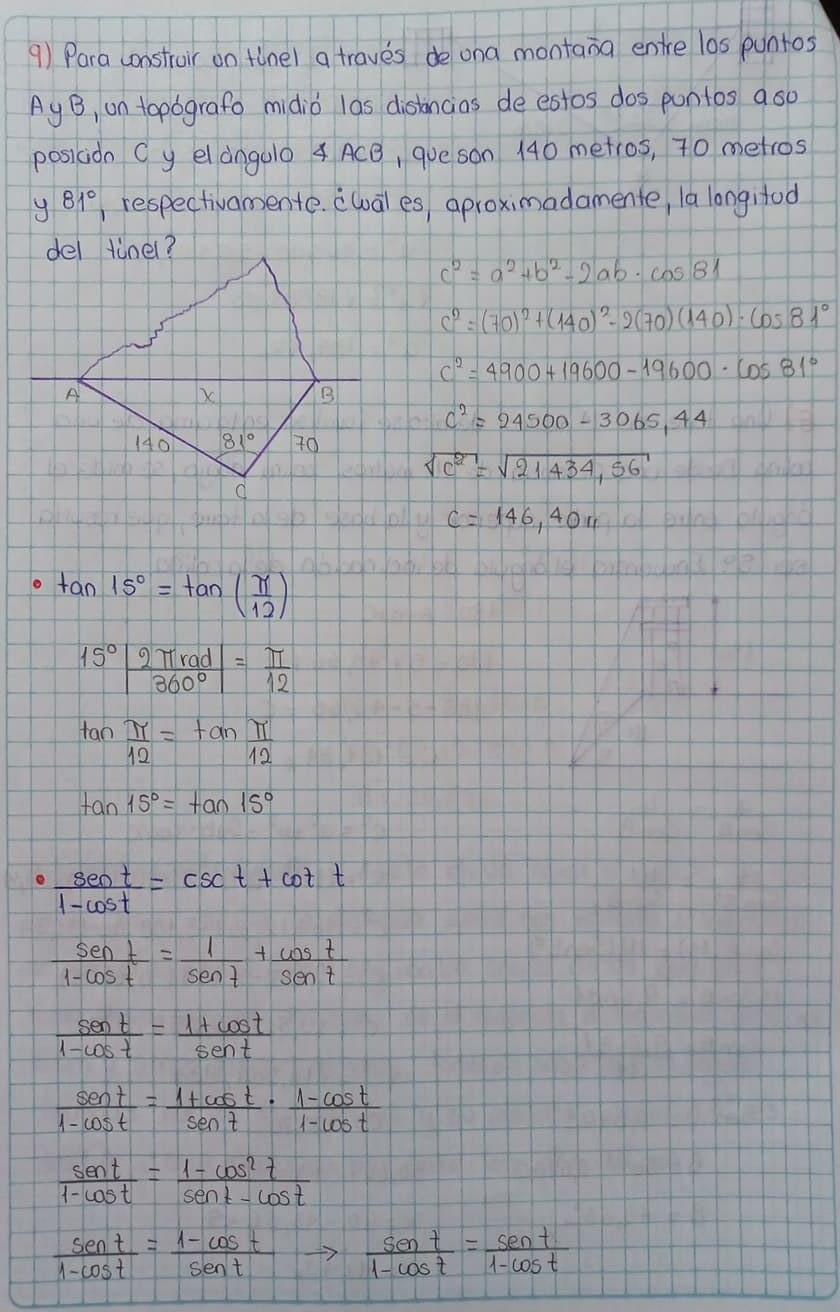 9) Para construir un túnel a través de una montaña entre los puntos
A y B, un topógrafo midió las distancias de estos dos puntos a su
posición C y el ángulo ∡ ACB, que son 140 metros, 70 metros
y 81°, respectivamente. ¿Cuál es, aproximadamente, la longitud
del túnel?
A
x
B
140
81°
70
C
c² = a² + b² - 2ab · cos 81
c² = (70)² + (140)² - 2(70)(140) · Cos 81°
c² = 4900 + 19600 - 19600 · Cos 81°
c² = 24500 - 3065,44
√c² = √21434,56
c = 146,40 //
• tan 15° = tan (π/12)
15° | 2π rad / 360° | = π/12
tan π/12 = tan π/12
tan 15° = tan 15°
• sen t / 1-cos t = csc t + cot t
sen t / 1-cos t = 1 / sen t + cos t / sen t
sen t / 1-cos t = 1+cos t / sen t
sen t / 1-cos t = 1+cos t / sen t · 1-cos t / 1-cos t
sen t / 1-cos t = 1-cos² t / sen t - cos t
sen t / 1-cos t = 1-cos t / sen t → sen t / 1-cos t = sen t / 1-cos t